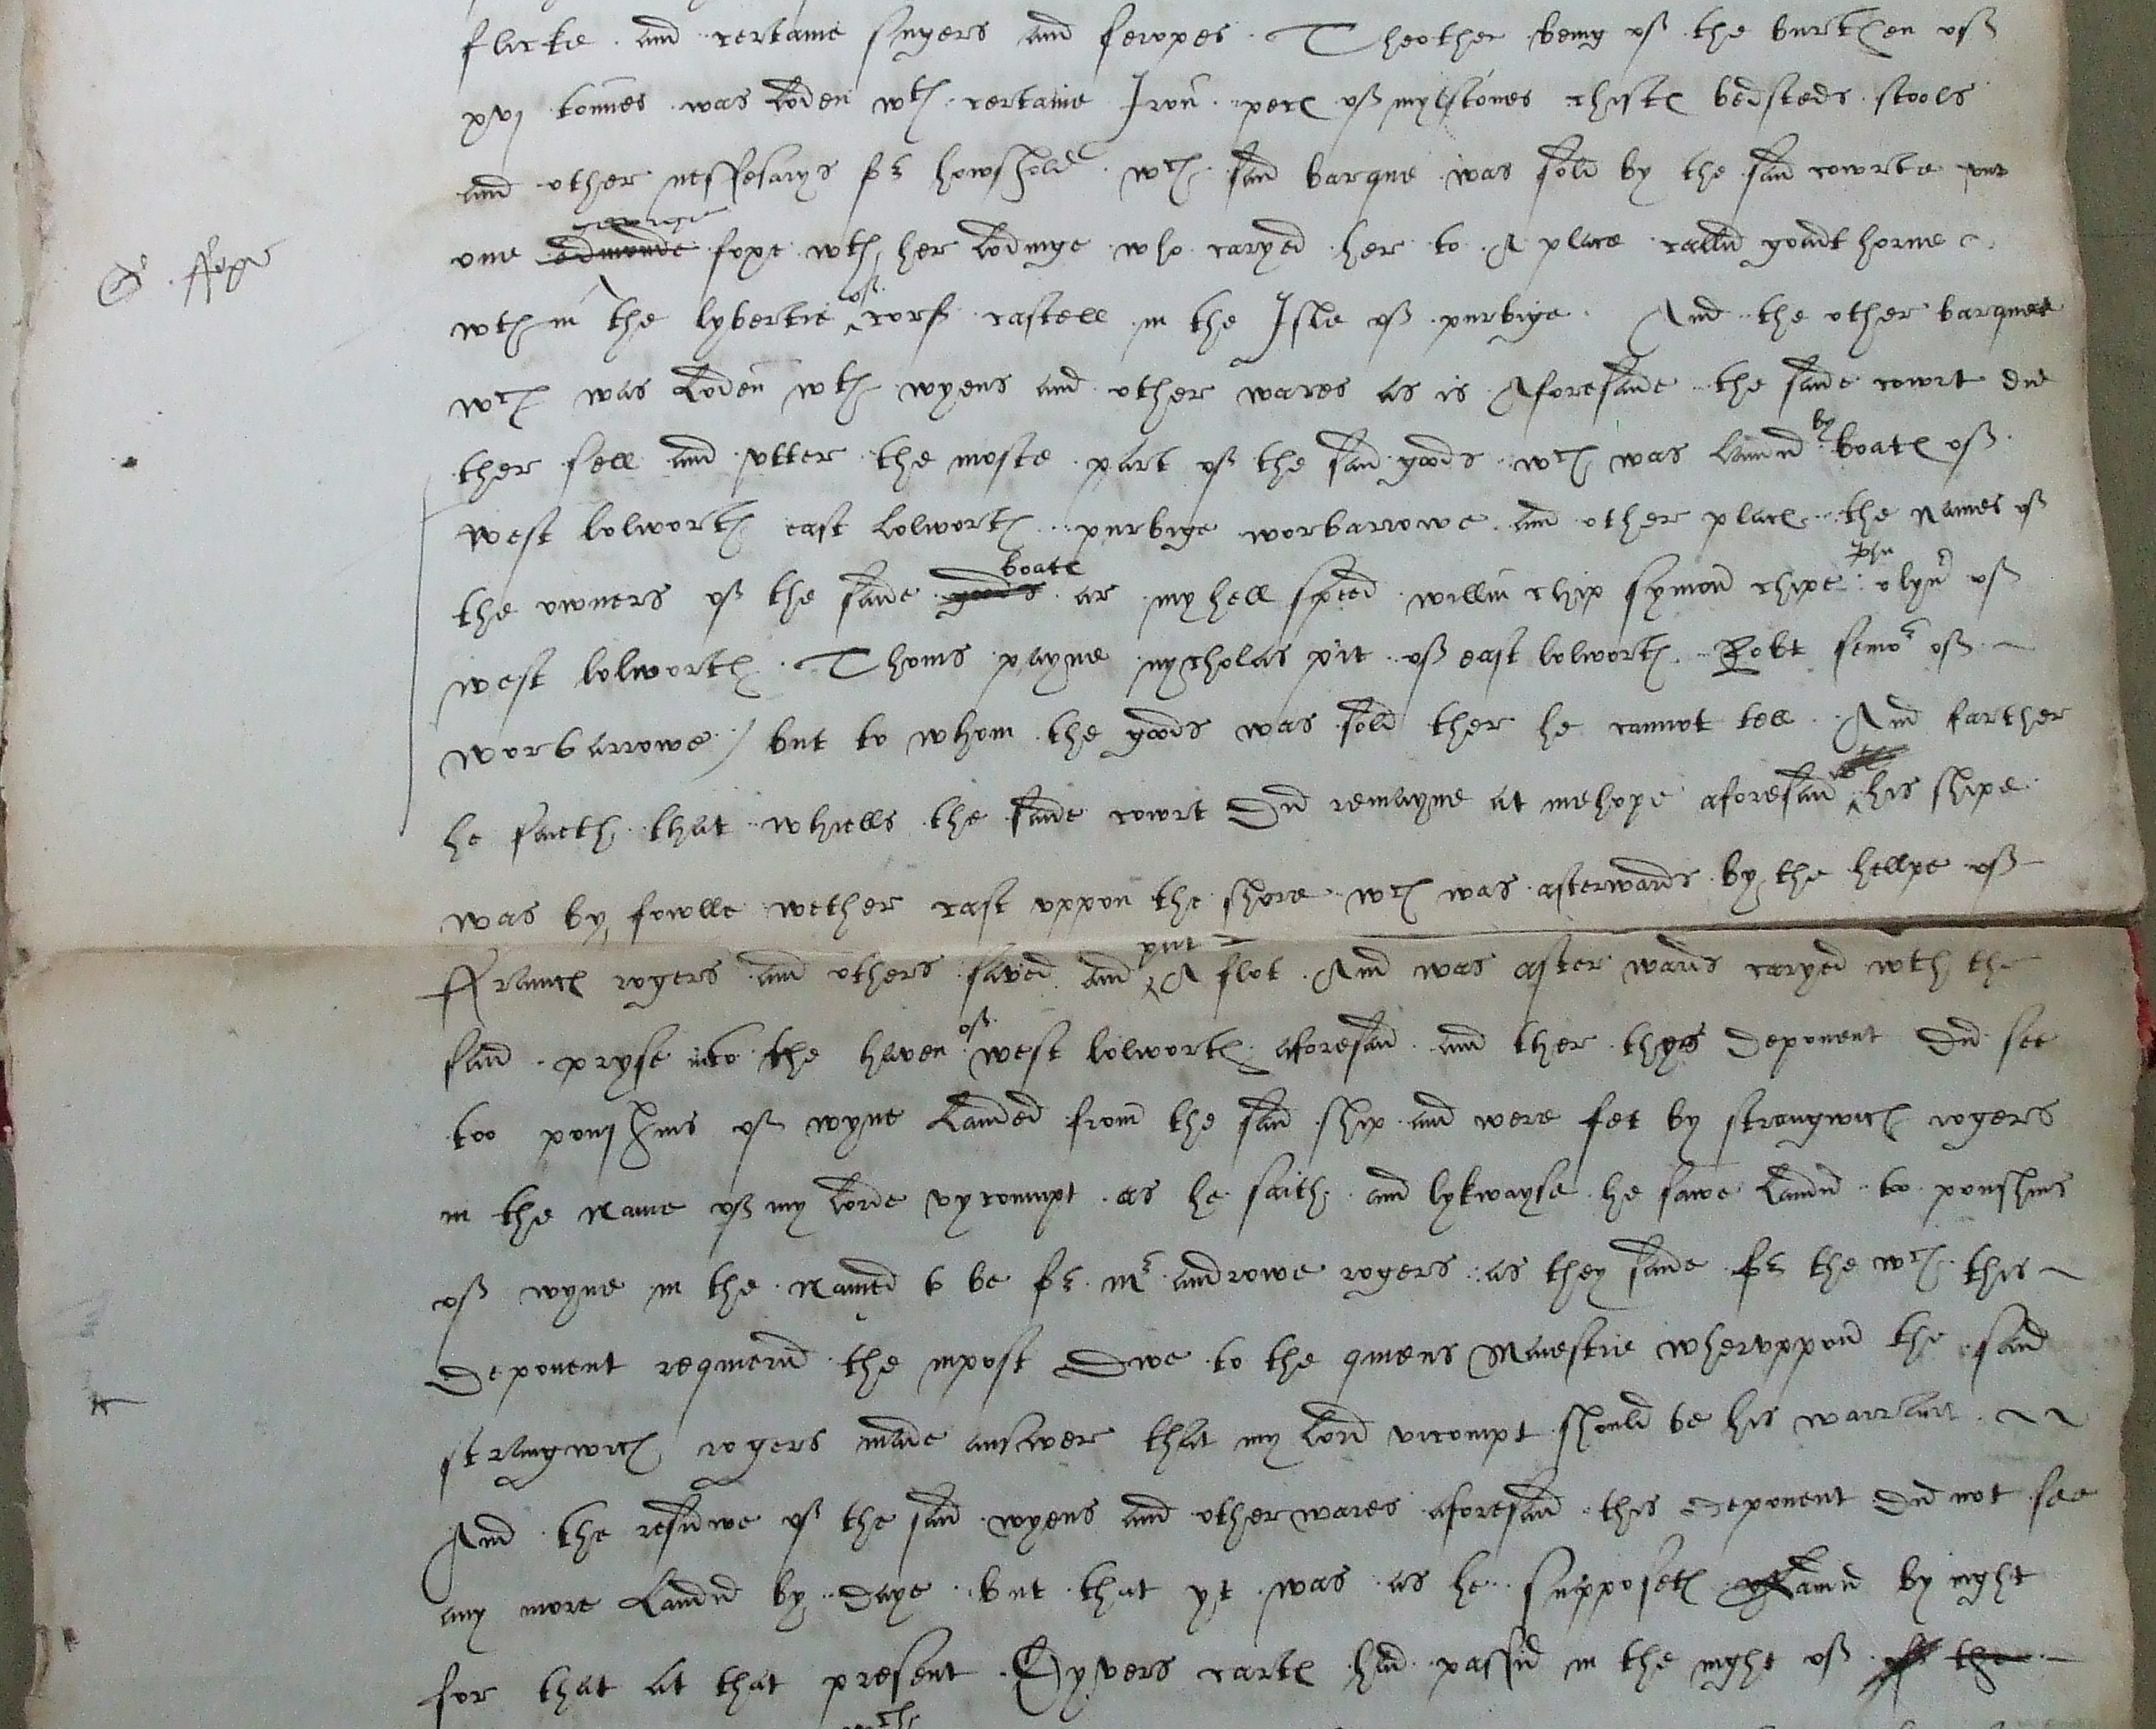 flacke and certaine sugers and seropes Theother being of the burthen of
xvj tonnes was Loden wth certaine Iron perc of mylstones chistes bedsteds stools
and other nessesarys for howshold wch said barque was sold by the said courte vnto
one edmonde george fope wth her Lodinge who caryed her to A place callid goadthorne
G ffope
wth in the lybertie of corf castell in the Isle of purbige And the other barque
wch was Loden wth wyens and other wares as is Aforesaide the saide court did
ther sell and vtter the moste part of the said goods wch was Landid by boates of
west lolworth east Lolworth purbige worbarrowe and other places the names of
the owners of the saide goods boates ar myhell speed willim chip symon chipe Jhn olyn of
west lolworth Thoms payne nycholas pit of east lolworth Robt semor of
worbarrowe / but to whom the goods was sold ther he cannot tell And farther
he saieth that whiells the saide court Did remayne at mehope aforesaid his shipe
was by fowlle wether cast vppon the shore wch was afterwards by the hellpe of
ffrancis rogers and others saved and put A flot And was after wards caryed wth the
said pryse into the haven of west lolworth aforesaid and ther thys Deponent Did see
too ponshins of wyne Landed from the said ship and were fet by strangwich rogers
in the name of my Lorde vycoumpt as he saith and lykwayse he sawe Landid to ponshins
of wyne in the named to be for Mr androwe rogers as they saide for the wch this
Deponent requierid the inpost Dwe to the quiens Maiestie whervppon the said
strangwich rogers made answer that my Lord vicompt should be his warrant
And the residwe of the said wyens and other wares aforesaid this Deponent Did not see
any more Landid by Daye but that yt was as he supposeth Landid by night
for that at that present Dyvers cartes had passid in the night of the
wch